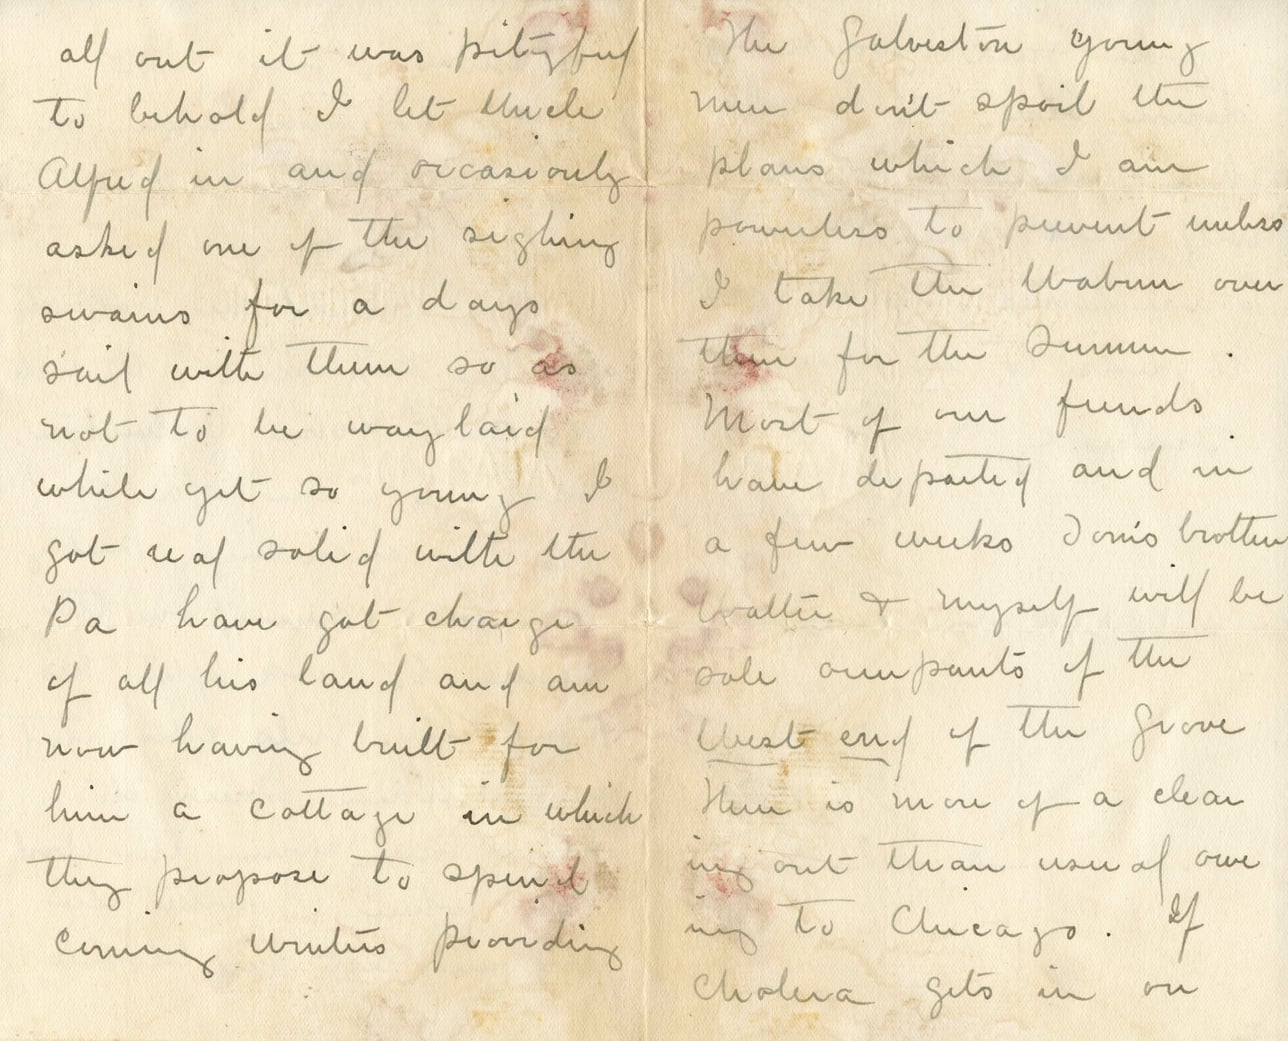 all out it was pityful
to behold I let Uncle
Alfred in and occasionly
asked one of the sighing
swains for a days
sail with them so as
not to be waylaid
while yet so young I
got real solid with the
Pa have got charge
of all his land and am
now having built for
him a cottage in which
they propose to spend
coming winters providing
The Galveston young
men don't spoil the
plans which I am
powerless to prevent unless
I take the Wabun over
there for the Summer.
Most of our friends
have departed and in
a few weeks Tom's brother
Walter & myself will be
sole occupants of the
West end of the Grove
There is more of a clear
ing out than usual owe
ing to Chicago. If
Cholera gets in on